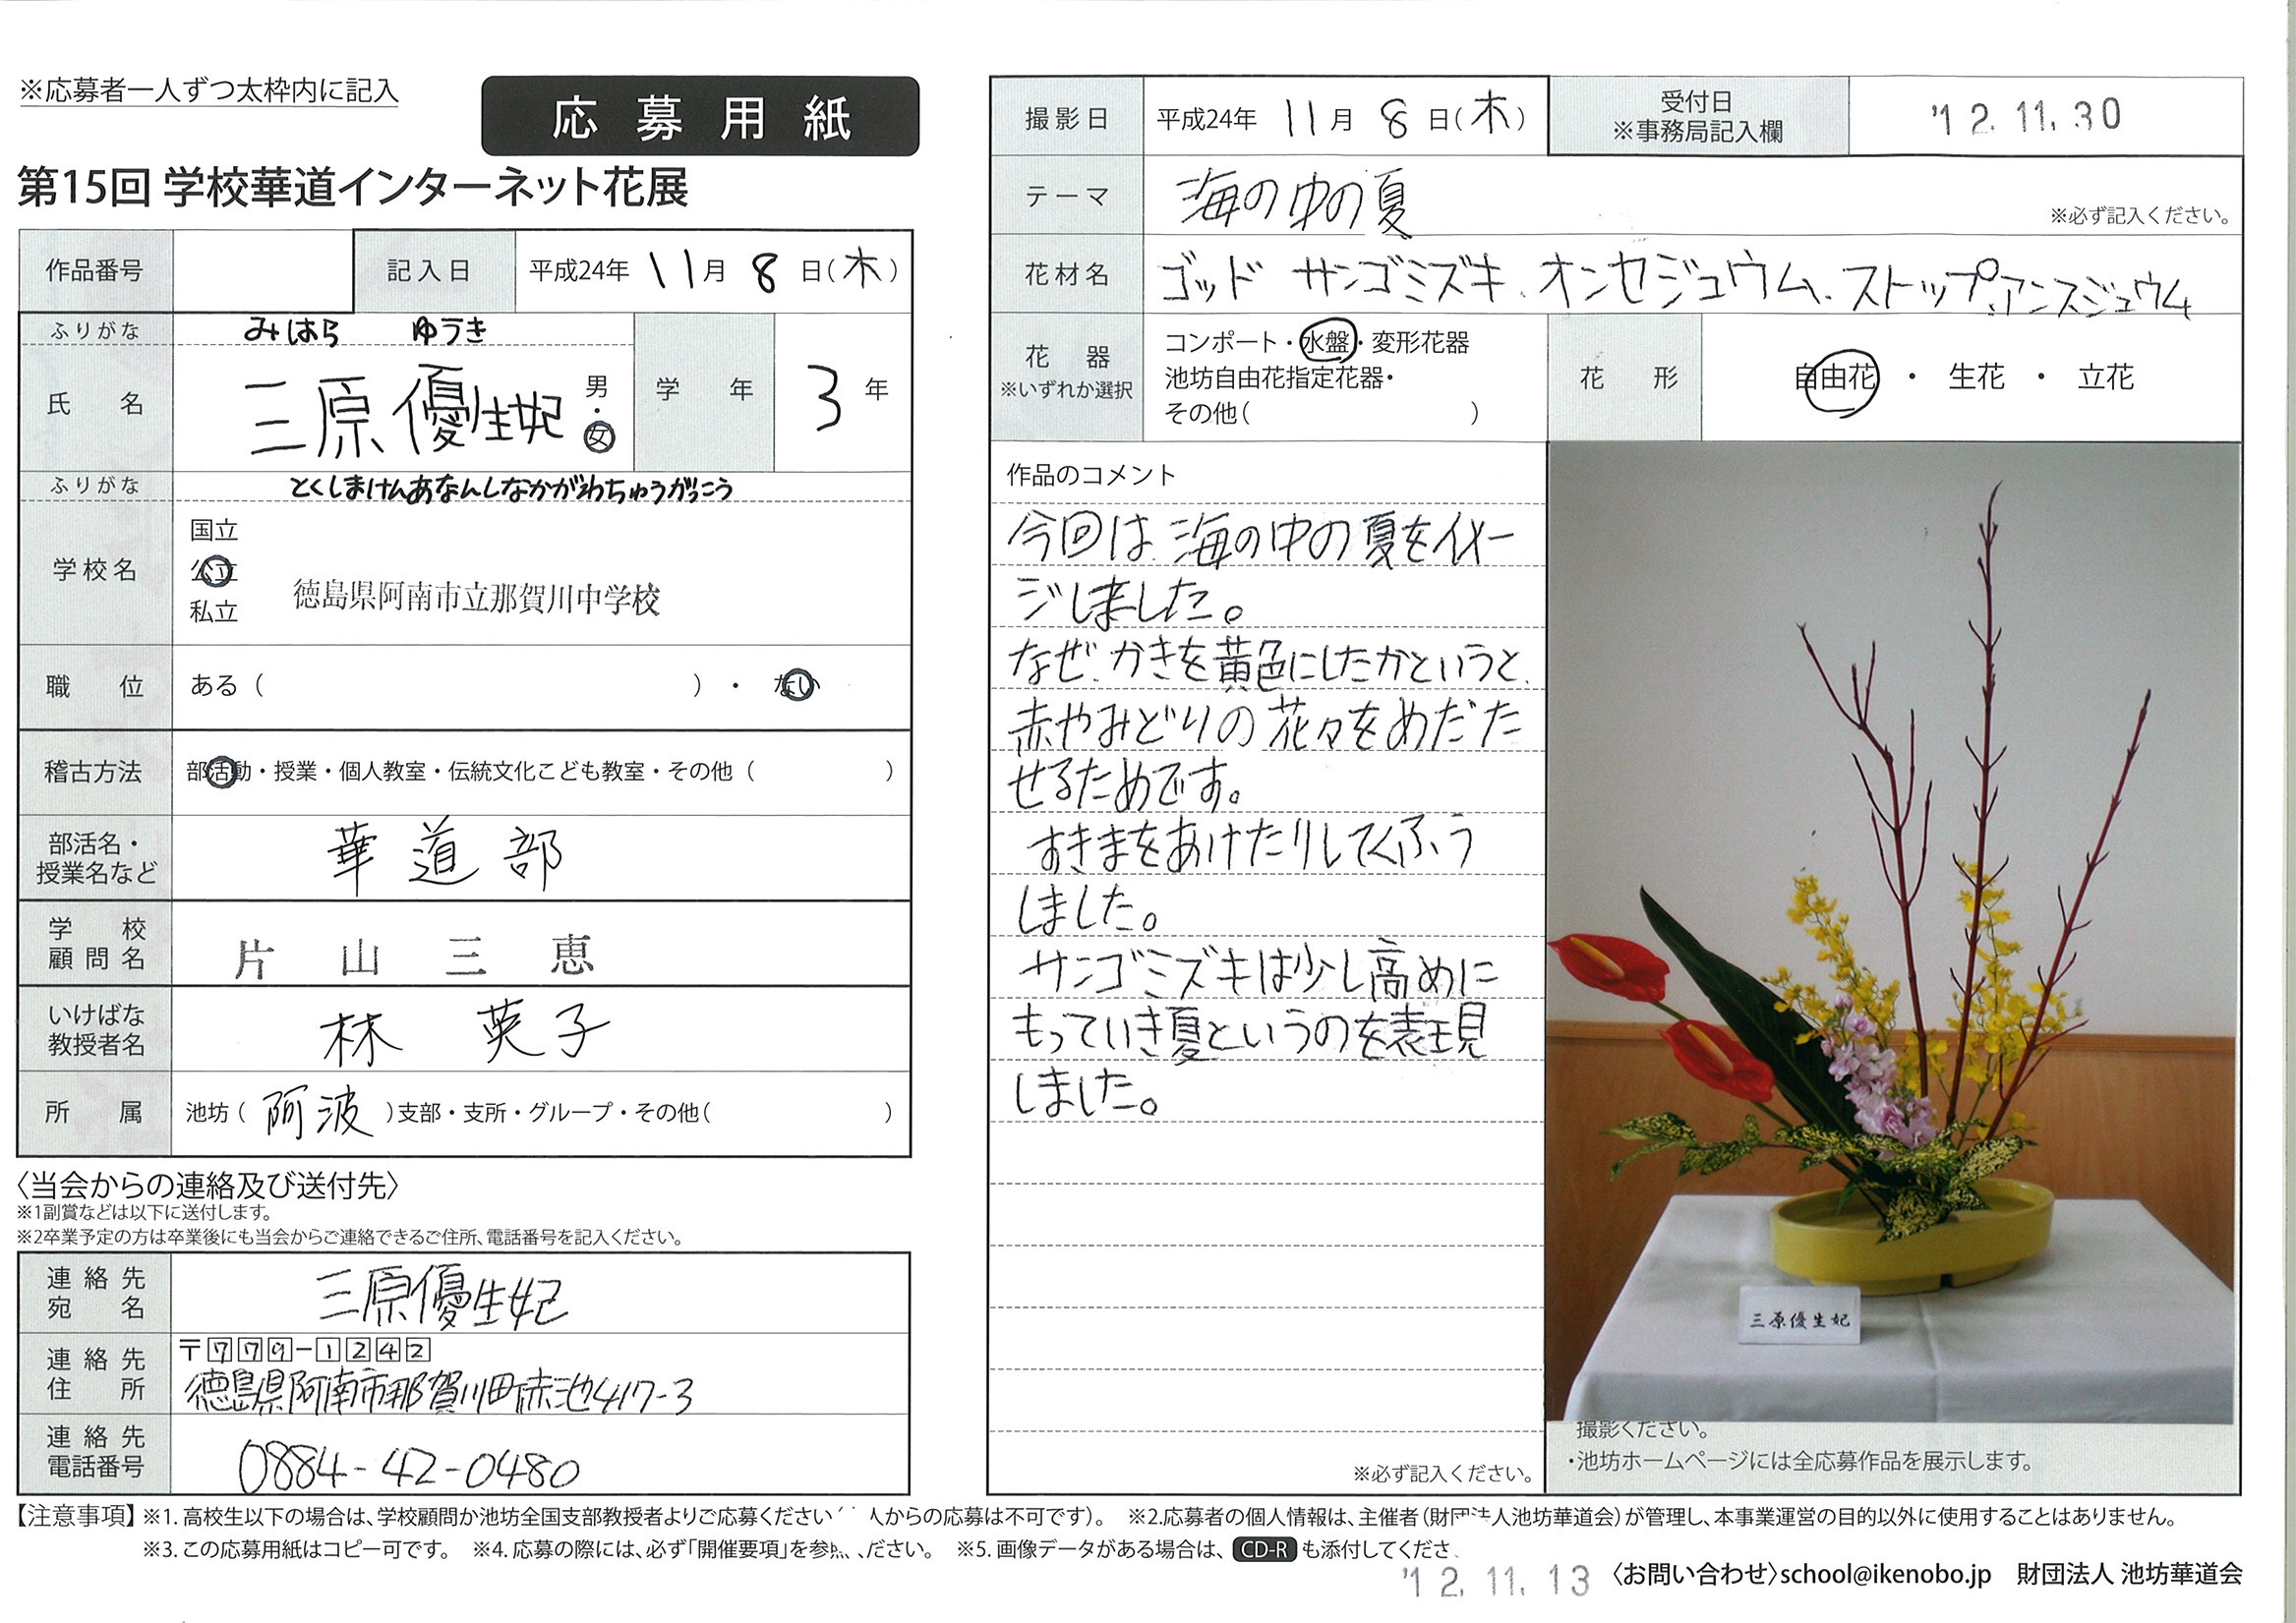 ※応募者一人ずつ太枠内に記入
応募用紙
第15回 学校華道インターネット花展
作品番号
記入日 平成24年 11月 8日(木)
ふりがな みはら ゆうき
氏名 三原優生妃 男・女
学年 3年
ふりがな とくしまけんあなんしなかがわちゅうがっこう
学校名 国立
公立
私立
徳島県阿南市立那賀川中学校
職位 ある( )・ない
稽古方法 部活動・授業・個人教室・伝統文化こども教室・その他( )
部活名・
授業名など 華道部
学校
顧問名 片山三恵
いけばな
教授者名 林 英子
所属 池坊(阿波)支部・支所・グループ・その他( )
〈当会からの連絡及び送付先〉
※1副賞などは以下に送付します。
※2卒業予定の方は卒業後にも当会からご連絡できるご住所、電話番号を記入ください。
連絡先
宛名 三原優生妃
連絡先
住所 〒779-1242
徳島県阿南市那賀川町赤池417-3
連絡先
電話番号 0884-42-0480
撮影日 平成24年 11月 8日(木)
受付日
※事務局記入欄 '12.11.30
テーマ 海の中の夏
※必ず記入ください。
花材名 ゴッド サンゴミズキ、オンセジュウム、ストップ、アンスジュウム
花器
※いずれか選択
コンポート・水盤・変形花器
池坊自由花指定花器・
その他( )
花形 自由花 ・ 生花 ・ 立花
作品のコメント
今回は、海の中の夏をイメー
ジしました。
なぜ、かきを黄色にしたかというと、
赤やみどりの花々をめだた
せるためです。
すきまをあけたりしてくふう
しました。
サンゴミズキは少し高めに
もっていき夏というのを表現
しました。
※必ず記入ください。
三原優生妃
撮影ください。
・池坊ホームページには全応募作品を展示します。
【注意事項】※1.高校生以下の場合は、学校顧問か池坊全国支部教授者よりご応募ください 人からの応募は不可です)。 ※2.応募者の個人情報は、主催者(財団法人池坊華道会)が管理し、本事業運営の目的以外に使用することはありません。
※3.この応募用紙はコピー可です。 ※4.応募の際には、必ず「開催要項」を参照ください。 ※5.画像データがある場合は、CD-Rも添付してくださ
'12.11.13
〈お問い合わせ〉school@ikenobo.jp 財団法人 池坊華道会